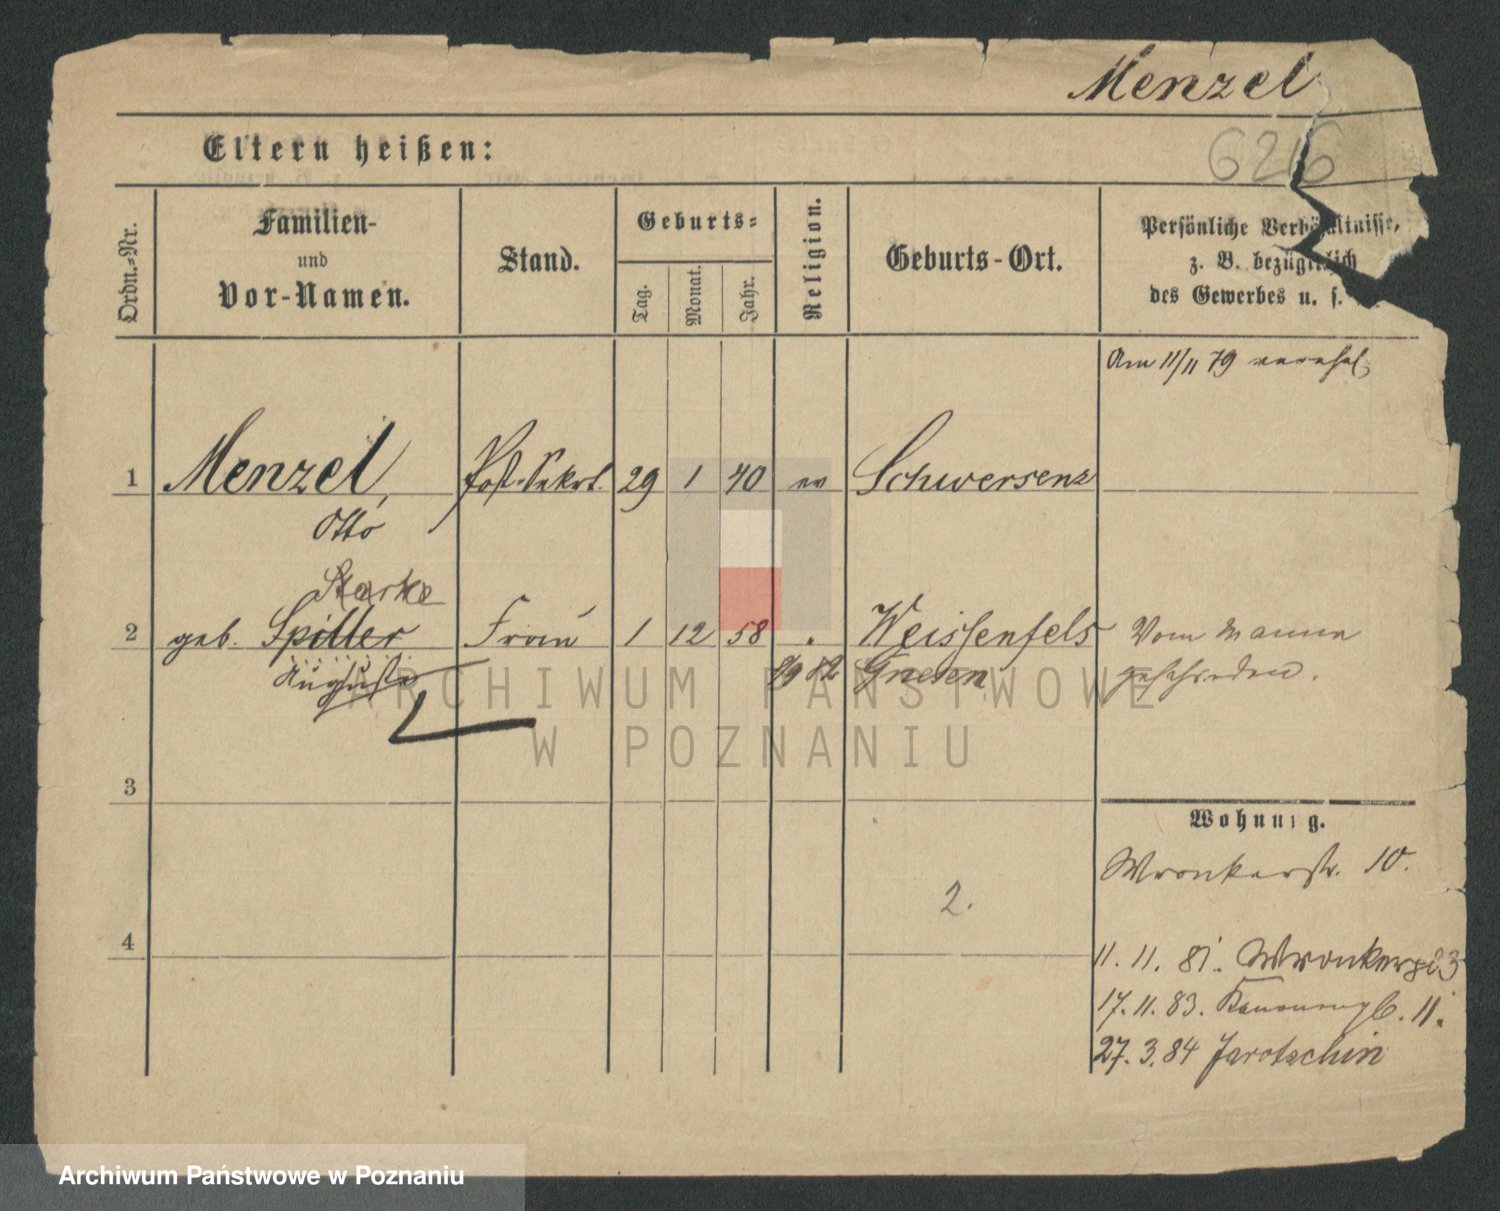 Menzel
626
Eltern heißen:
Ordn.-Nr.
Familien-
und
Vor-Namen.
Stand.
Geburts-
Tag.
Monat.
Jahr.
Religion.
Geburts-Ort.
Persönliche Verhältnisse,
z. B. bezüglich
des Gewerbes u. s.
Am 11/11 79 verehel.
1 Menzel, Post-Sekret. 29 1 40 ev Schwersenz
Otto
Starke
2 geb. Spiller Frau 1 12 58 Weissenfels Vom Manne
Auguste 9/9 82 Gnesen geschieden.
ARCHIWUM PAŃSTWOWE
W POZNANIU
3
Wohnung.
Wronkerstr. 10.
2.
4
11. 11. 81. Wronkerpl 3
17. 11. 83. Kanonenpl. 11.
27. 3. 84 Jarotschin
Archiwum Państwowe w Poznaniu